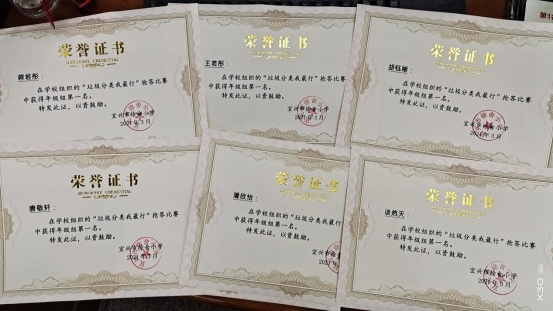 荣誉证书
HONORARY CREDENTIAL
蒋若彤：
在学校组织的“垃圾分类我最行”抢答比赛
中获得年级组第一名。
特发此证，以资鼓励。
2021年3月
荣誉证书
王若彤：
在学校组织的“垃圾分类我最行”抢答比赛
中获得年级组第一名。
特发此证，以资鼓励。
2021年3月
荣誉证书
在学校组织的“垃圾分类我最行”抢答比赛
中获得年级组第一名。
特发此证，以资鼓励。
2021年3月
荣誉证书
HONORARY CREDENTIAL
唐敬轩：
在学校组织的“垃圾分类我最行”抢答比赛
中获得年级组第一名。
特发此证，以资鼓励。
荣誉证书
潘欣怡：
在学校组织的“垃圾分类我最行”
中获得年级组第一名。
特发此证，以资鼓励。
荣誉证书
谈然天：
在学校组织的“垃圾分类我最行”抢答比赛
中获得年级组第一名。
特发此证，以资鼓励。
X30